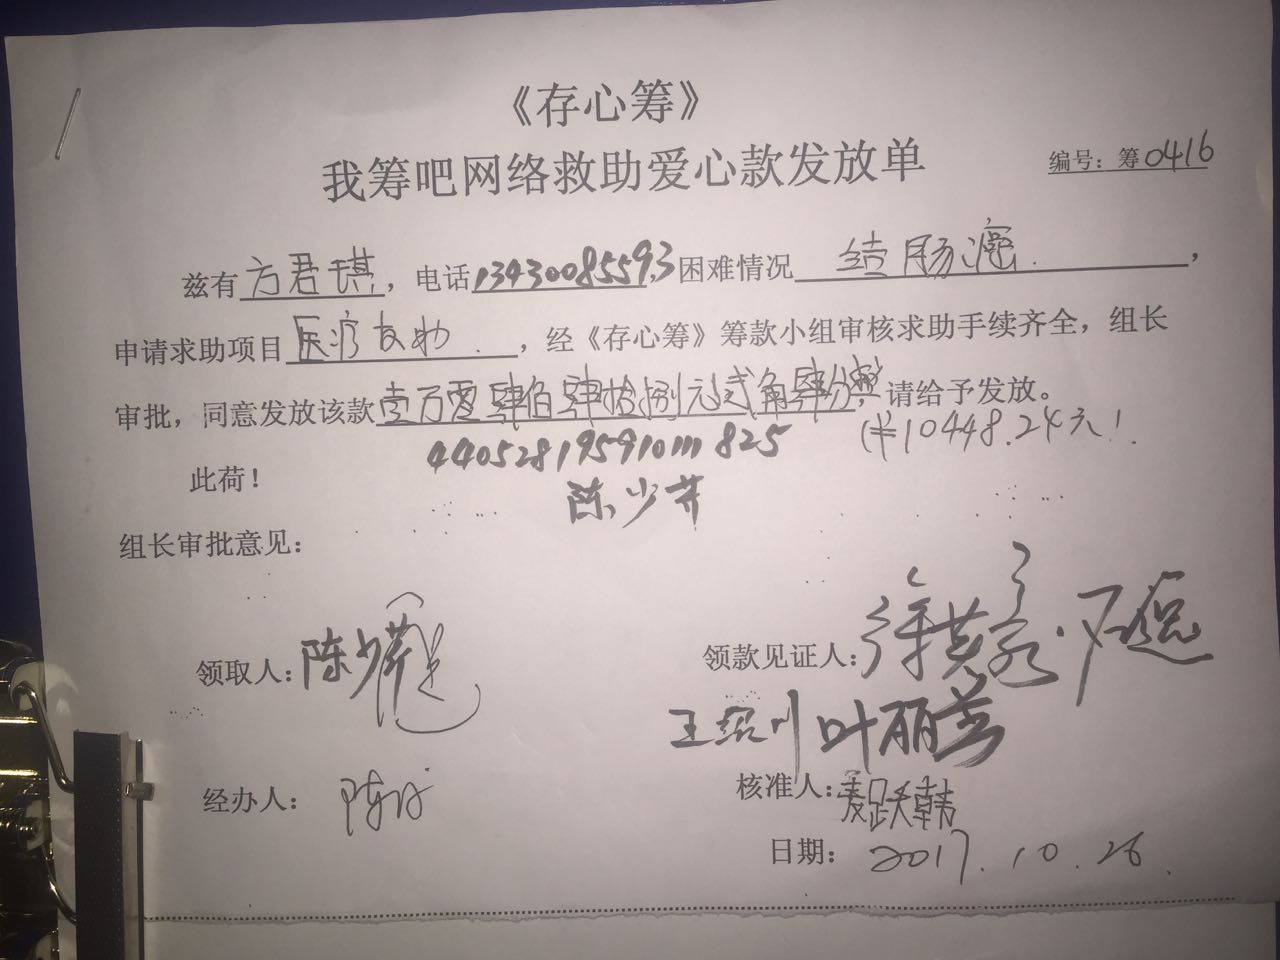 《存心筹》
我筹吧网络救助爱心款发放单
编号：筹0416
兹有方君琪，电话13430085593困难情况结肠癌，
申请求助项目医疗救助，经《存心筹》筹款小组审核求助手续齐全，组长
审批，同意发放该款壹万零肆佰肆拾捌元贰角肆分整，请给予发放。
(¥10448.24元)
440528195910111825
此荷！
陈少芳
组长审批意见：
领取人：陈少芳
领款见证人：
王绍川 叶丽芸
经办人：
核准人：麦跃韩
日期：2017.10.26